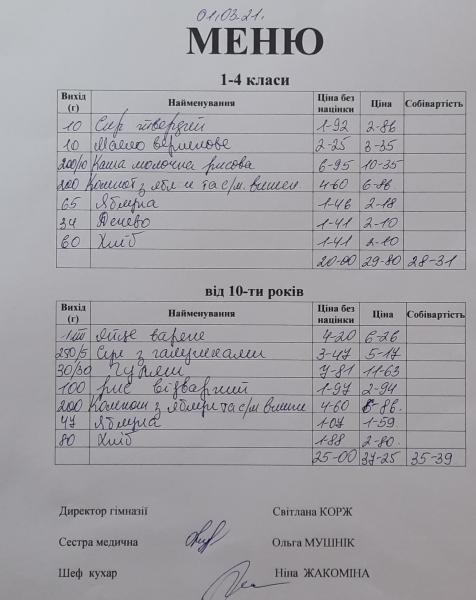 01.03.21.
МЕНЮ
1-4 класи
Вихід (г) Найменування Ціна без націнки Ціна Собівартість
10 Сир твердий 1-92 2-86
10 Масло вершкове 2-25 3-35
200/10 Каша молочна рисова 6-95 10-35
200 Компот з ябл та с/м. вишен 4-60 6-86
65 Яблука 1-46 2-18
34 Печево 1-41 2-10
60 Хліб 1-41 2-10
20-00 29-80 28-31
від 10-ти років
Вихід (г) Найменування Ціна без націнки Ціна Собівартість
1шт Яйце варене 4-20 6-26
250/5 Суп з галушками 3-47 5-17
30/30 Гуляш 7-81 11-63
100 рис відварний 1-97 2-94
200 Компот з яблук та с/м вишні 4-60 6-86.
47 Яблука 1-07 1-59
80 Хліб 1-88 2-80.
25-00 37-25 35-39
Директор гімназії Світлана КОРЖ
Сестра медична Ольга МУШНІК
Шеф кухар Ніна ЖАКОМІНА